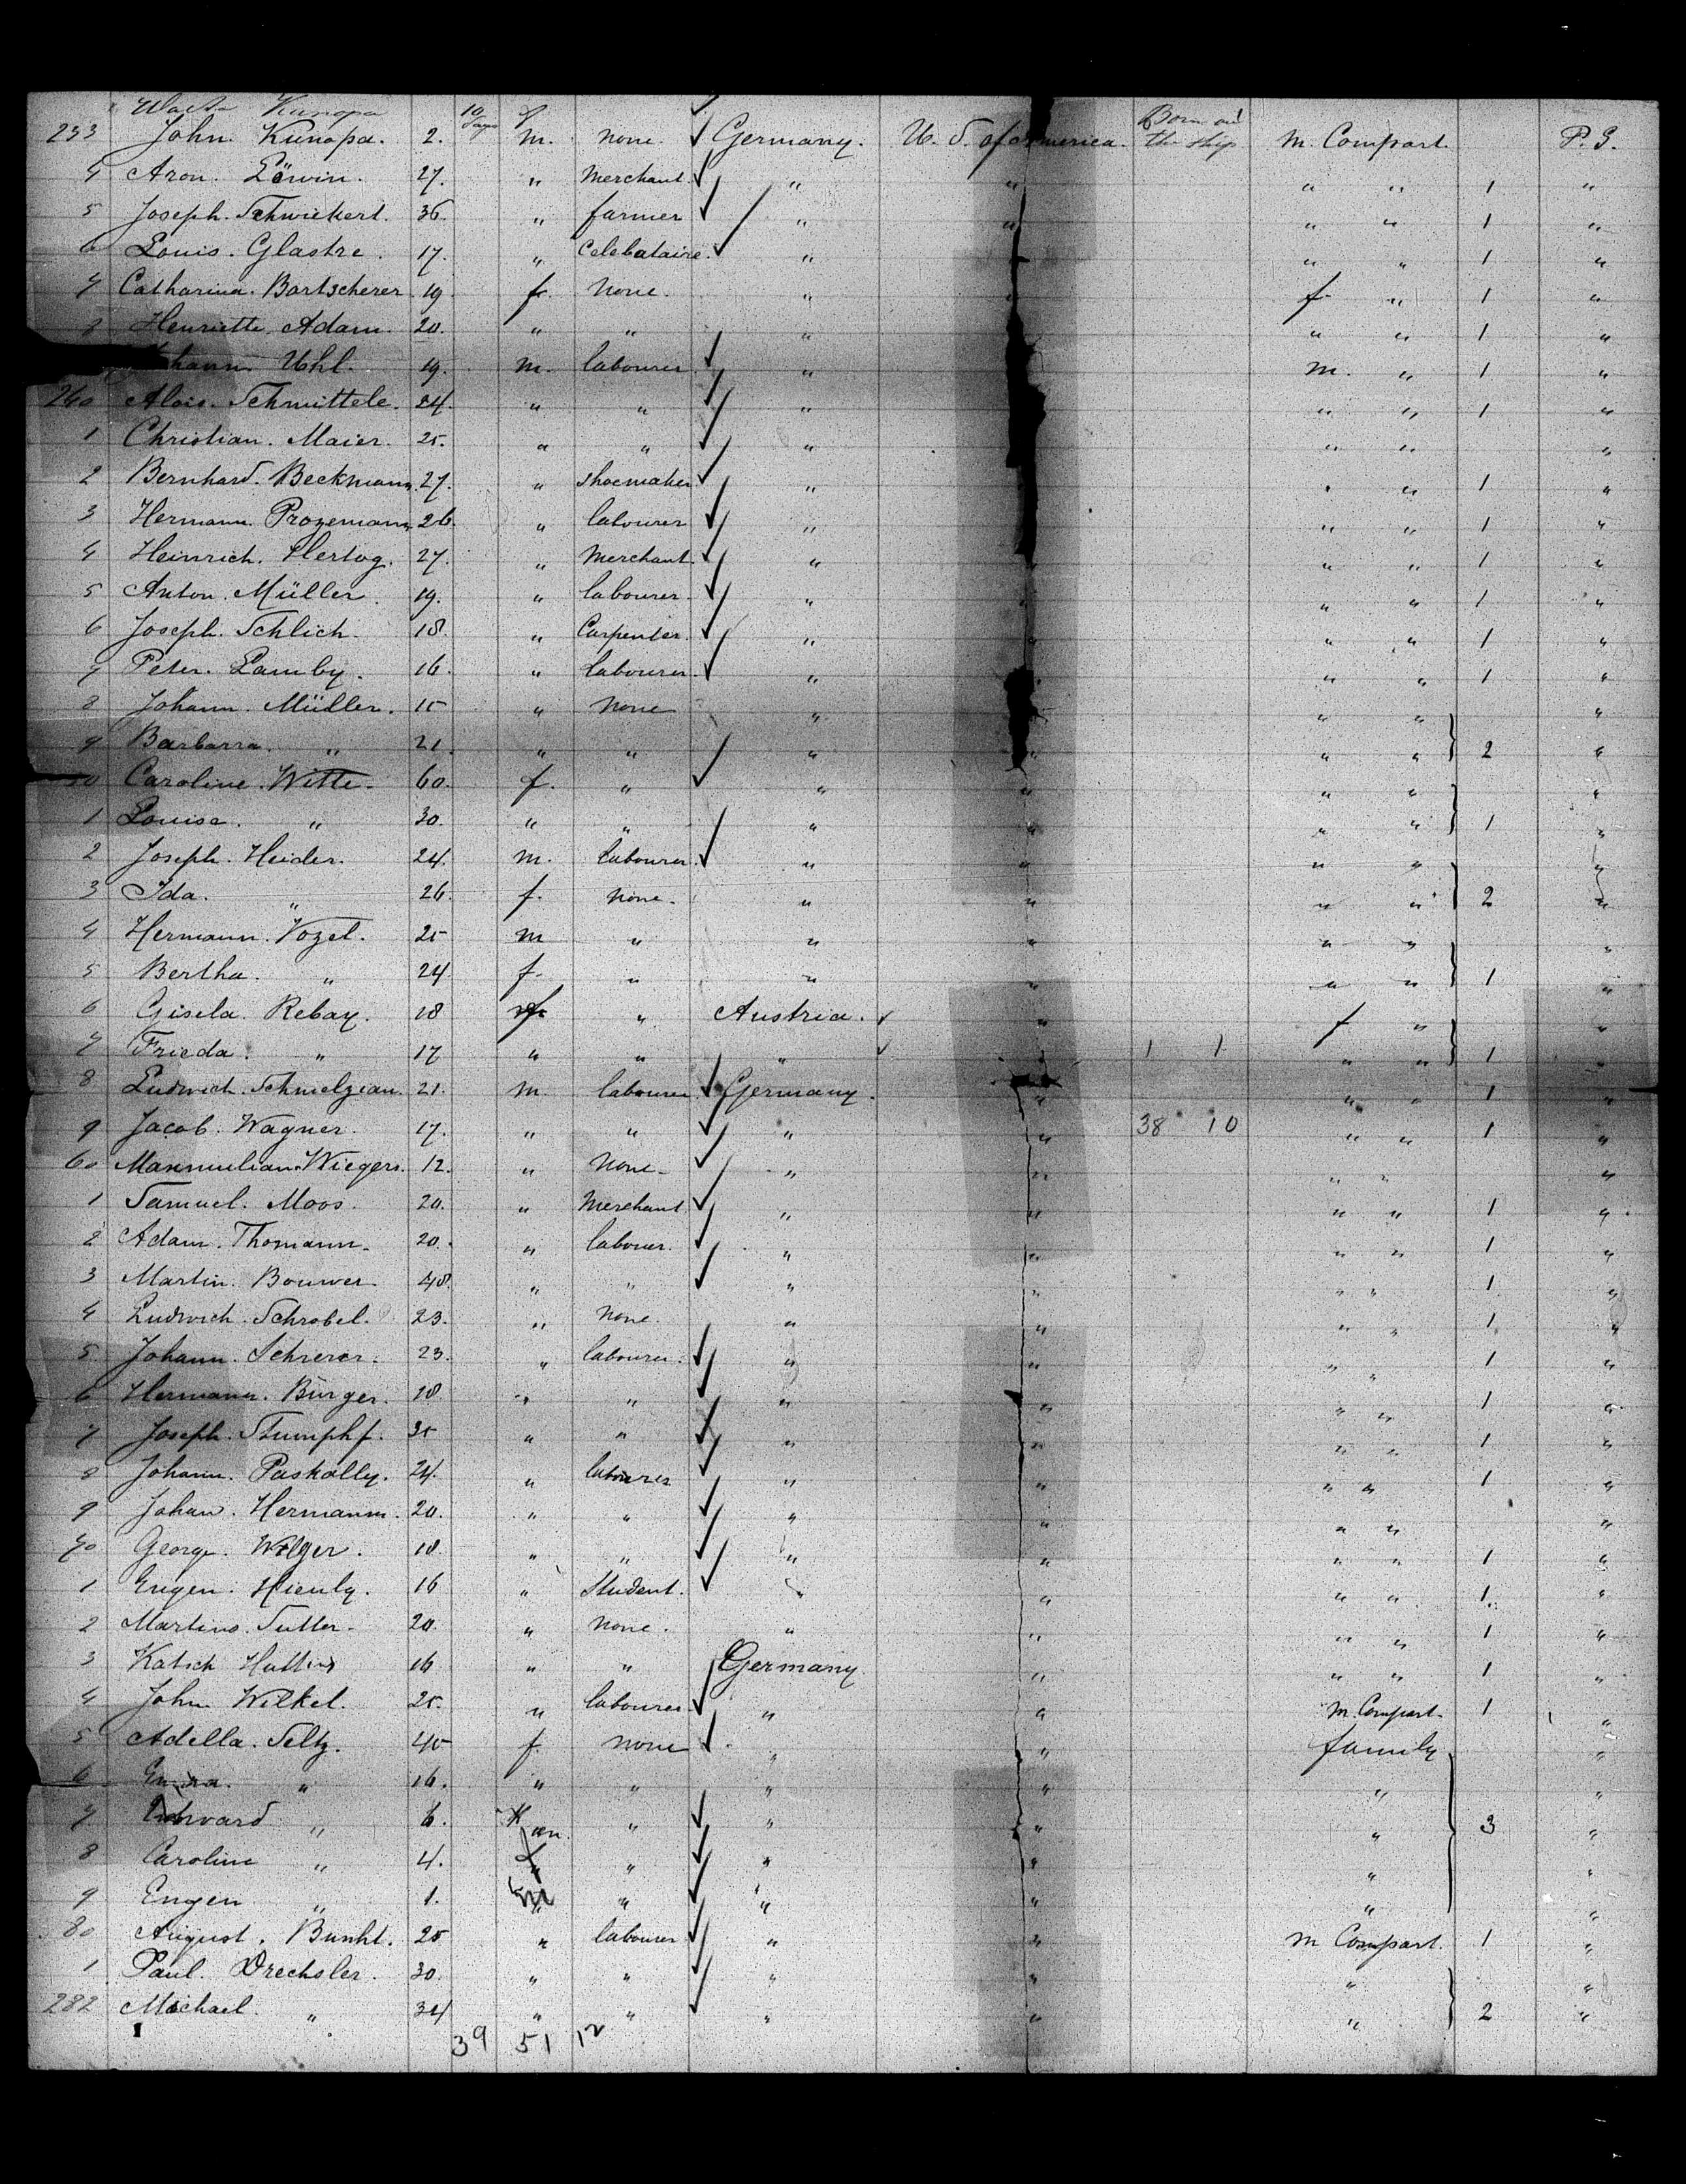 Kunopa 10 days f
233 John. Kunopa. 2. m. none. Germany. U. S. of America. Born on the ship m. Compart. P. S.
4 Aron. Löwin. 27. " Merchant. " " " " 1 "
5 Joseph. Schwickert. 36. " farmer " " " " 1 "
6 Louis. Glastre. 17. " Celebataire. " " " 1 "
7 Catharina. Bartscherer. 19. f. None. " " f. " 1 "
8 Henriette. Adam. 20. " " " " " 1 "
Uhl. 19. m. labourer " m. " 1 "
240 Alois. Schmittele. 24. " " " " " 1 "
1 Christian. Maier. 25. " " " " " "
2 Bernhard. Beckmann. 27. " shoemaker " " " 1 "
3 Hermann. Prozemann. 26. " labourer " " " 1 "
4 Heinrich. Hertog. 27. " Merchant. " " " " 1 "
5 Anton. Müller. 19. " labourer. " " " " 1 "
6 Joseph. Schlich. 18. " Carpenter. " " " " 1 "
7 Peter. Lamby. 16. " labourer. " " " " 1 "
8 Johann. Müller. 15 " None " " " "
9 Barbarra. " 21. " " " " " " 2 "
50 Caroline. Witte. 60. f. " " " " " "
1 Louise. " 30. " " " " " " 1 "
2 Joseph. Heider. 24. m. labourer. " " " " "
3 Ida. " 26. f. none. " " " " 2 "
4 Hermann. Vozel. 25 m " " " " " "
5 Bertha. " 24. f. " " " " " 1 "
6 Gisela. Rebay. 18 f. " Austria. " f " "
7 Frieda. " 17 " " " " 1 1 " " 1 "
8 Ludwich. Schmelzian. 21. m. labourer. Germany. " " " 1 "
9 Jacob. Wagner. 17. " " " " 38 10 " " 1 "
60 Maxmulian. Wiegers. 12. " None. " " " " "
1 Samuel. Moos. 20. " Merchant " " " " 1 "
2 Adam. Thomann. 20. " labouer. " " " " 1 "
3 Martin. Bouwer. 48. " " " " " " 1 "
4 Ludwich. Schrobel. 23. " None. " " " " 1 "
5 Johann. Schrerer. 23. " labourer. " " " 1 "
6 Hermann. Bürger. 18. " " " " " " 1 "
7 Joseph. Stumphf. 35 " " " " " " 1 "
8 Johann. Paskally. 24. " labourer " " " " 1 "
9 Johan. Hermann. 20. " " " " " " "
70 George. Wilger. 18. " " " " " " 1 "
1 Eugen. Hienly. 16 " Student. " " " " 1. "
2 Martins. Sutter. 20. " None. " " " " 1 "
3 Katsch Hutting 16 " " Germany " " " 1 "
4 John Wilkel. 25. " labourer. " " m. Compart. 1 "
5 Adella. Seltz. 45 f. none " " family "
6 " 16. " " " " " "
7 Edward " 6. m. " " " " 3 "
8 Caroline " 4. f " " " " "
9 Eugen " 1. m " " " " "
80 August. Bunht. 25 " labourer " " m Compart. 1 "
1 Paul. Drechsler. 30. " " " " " "
282 Michael. " 34 " " " " " 2 "
39 51 12